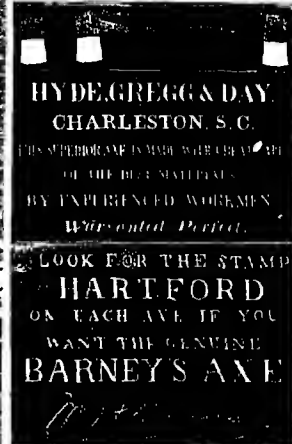 HYDE, GREGG & DAY.
CHARLESTON, S.C.
THIS SUPERIOR AXE IS MADE WITH GREAT CARE
OF THE BEST MATERIALS
BY EXPERIENCED WORKMEN
Warranted Perfect.
LOOK FOR THE STAMP
HARTFORD
ON EACH AXE IF YOU
WANT THE GENUINE
BARNEY'S AXE